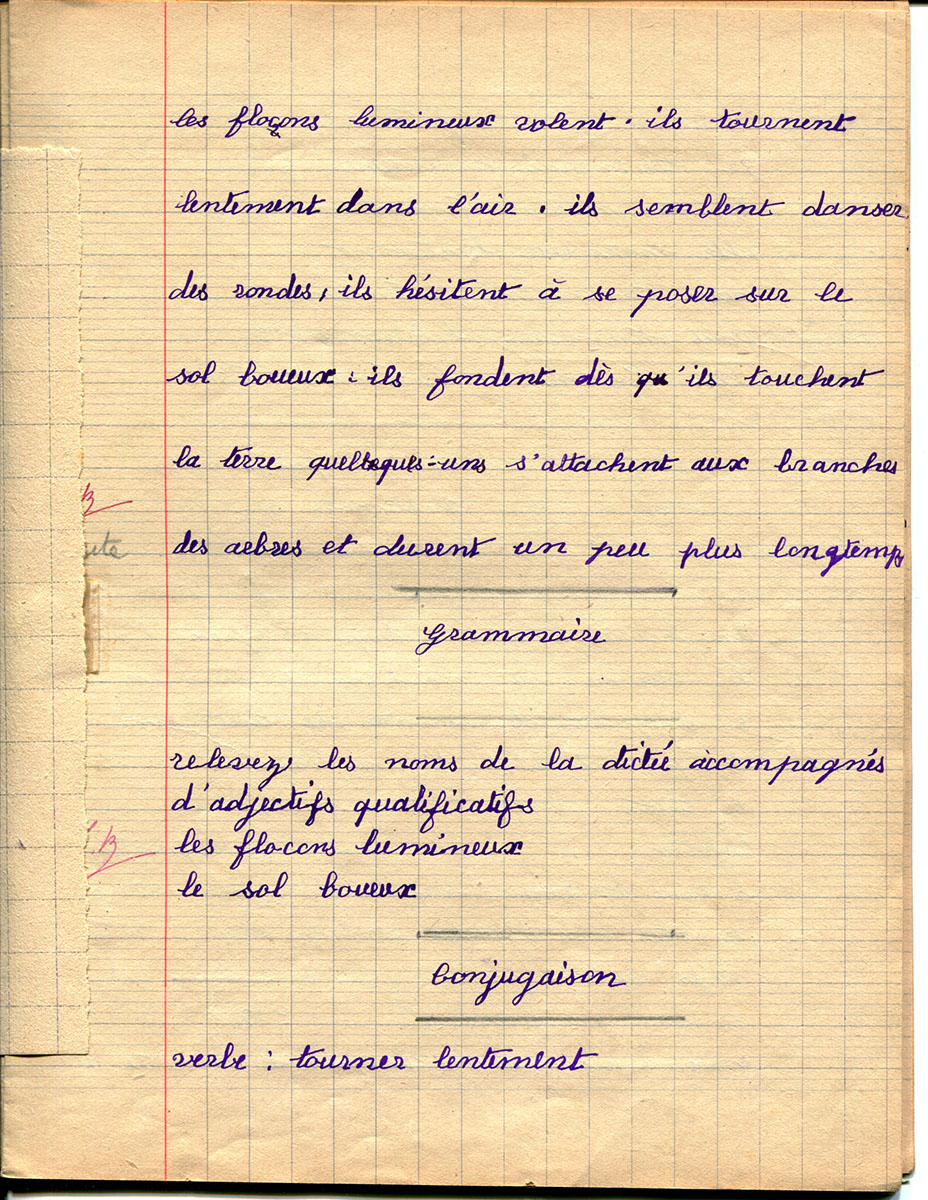 les flocons lumineux volent. ils tournent
lentement dans l'air. ils semblent danser
des rondes, ils hésitent à se poser sur le
sol boueux: ils fondent dès qu'ils touchent
la terre quelques-uns s'attachent aux branches
des arbres et durent un peu plus longtemps
Grammaire
relevez les noms de la dictée accompagnés
d'adjectifs qualificatifs
B
les flocons lumineux
le sol boueux
Conjugaison
verbe: tourner lentement